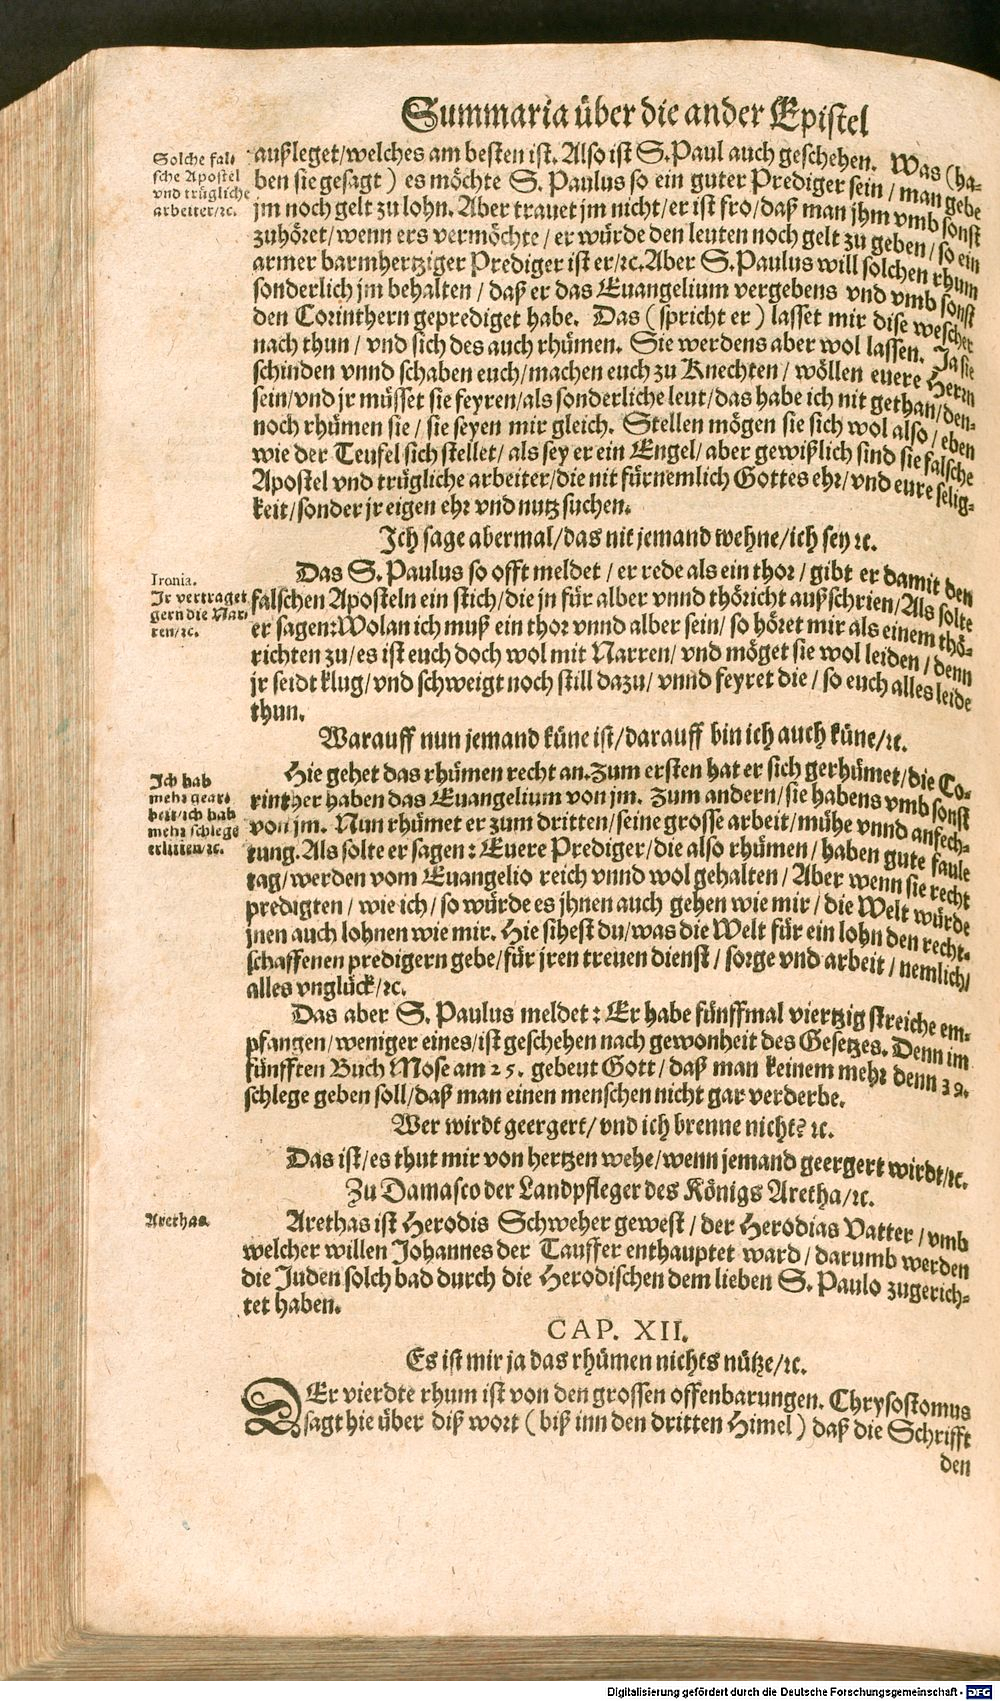 Summaria über die ander Epistel
Solche fal-
sche Apostel
vnd trügliche
arbeiter/ꝛc.
außleget/welches am besten ist. Also ist S. Paul auch geschehen. Was (ha-
ben sie gesagt) es möchte S. Paulus so ein guter Prediger sein / man gebe
jm noch gelt zu lohn. Aber trauet jm nicht/er ist fro/daß man jhm vmb sonst
zuhöret/wenn ers vermöchte / er würde den leuten noch gelt zu geben / so ein
armer barmhertziger Prediger ist er/ꝛc. Aber S. Paulus will solchen rhum
sonderlich jm behalten / daß er das Euangelium vergebens vnd vmb sonst
den Corinthern geprediget habe. Das (spricht er) lasset mir dise wescher
nach thun / vnd sich des auch rhümen. Sie werdens aber wol lassen. Ja sie
schinden vnnd schaben euch/machen euch zu Knechten / wöllen euere Herrn
sein/vnd jr müsset sie feyren/als sonderliche leut/das habe ich nit gethan/den-
noch rhümen sie / sie seyen mir gleich. Stellen mögen sie sich wol also / eben
wie der Teufel sich stellet/ als sey er ein Engel/ aber gewißlich sind sie falsche
Apostel vnd trügliche arbeiter/die nit fürnemlich Gottes ehr/vnd eure selig-
keit/sonder jr eigen ehr vnd nutz suchen.
Ich sage abermal/das nit jemand wehne/ich sey ꝛc.
Ironia.
Ir vertraget
gern die Nar-
ren/ꝛc.
Das S. Paulus so offt meldet / er rede als ein thor / gibt er damit den
falschen Aposteln ein stich/die jn für alber vnnd thöricht außschrien/Als solte
er sagen: Wolan ich muß ein thor vnnd alber sein/ so höret mir als einem thö-
richten zu/es ist euch doch wol mit Narren/ vnd möget sie wol leiden / denn
jr seidt klug/vnd schweigt noch still dazu/ vnnd feyret die / so euch alles leide
thun.
Warauff nun jemand küne ist/darauff bin ich auch küne/ꝛc.
Ich hab
mehr gear-
beit/ich hab
mehr schlege
erlitten/ꝛc.
Hie gehet das rhümen recht an. Zum ersten hat er sich gerhümet/die Co-
rinther haben das Euangelium von jm. Zum andern/sie habens vmb sonst
von jm. Nun rhümet er zum dritten/seine grosse arbeit/mühe vnnd anfech-
tung. Als solte er sagen: Euere Prediger/die also rhümen / haben gute faule
tag/werden vom Euangelio reich vnnd wol gehalten / Aber wenn sie recht
predigten / wie ich / so würde es jhnen auch gehen wie mir / die Welt würde
jnen auch lohnen wie mir. Hie sihest du/was die Welt für ein lohn den recht-
schaffenen predigern gebe/für jren treuen dienst / sorge vnd arbeit / nemlich/
alles vnglück/ꝛc.
Das aber S. Paulus meldet: Er habe fünffmal viertzig streiche em-
pfangen/weniger eines/ist geschehen nach gewonheit des Gesetzes. Denn im
fünfften Buch Mose am 25. gebeut Gott / daß man keinem mehr denn 39.
schlege geben soll/daß man einen menschen nicht gar verderbe.
Wer wirdt geergert/ vnd ich brenne nicht? ꝛc.
Das ist/es thut mir von hertzen wehe/wenn jemand geergert wirdt/ꝛc.
Zu Damasco der Landpfleger des Königs Aretha/ꝛc.
Arethas.
Arethas ist Herodis Schweher gewest / der Herodias Vatter / vmb
welcher willen Johannes der Tauffer enthauptet ward / darumb werden
die Juden solch bad durch die Herodischen dem lieben S. Paulo zugerich-
tet haben.
CAP. XII.
Es ist mir ja das rhümen nichts nütze/ꝛc.
DEr vierdte rhum ist von den grossen offenbarungen. Chrysostomus
sagt hie über diß wort (biß inn den dritten Himel) daß die Schrifft
den
Digitalisierung gefördert durch die Deutsche Forschungsgemeinschaft - DFG